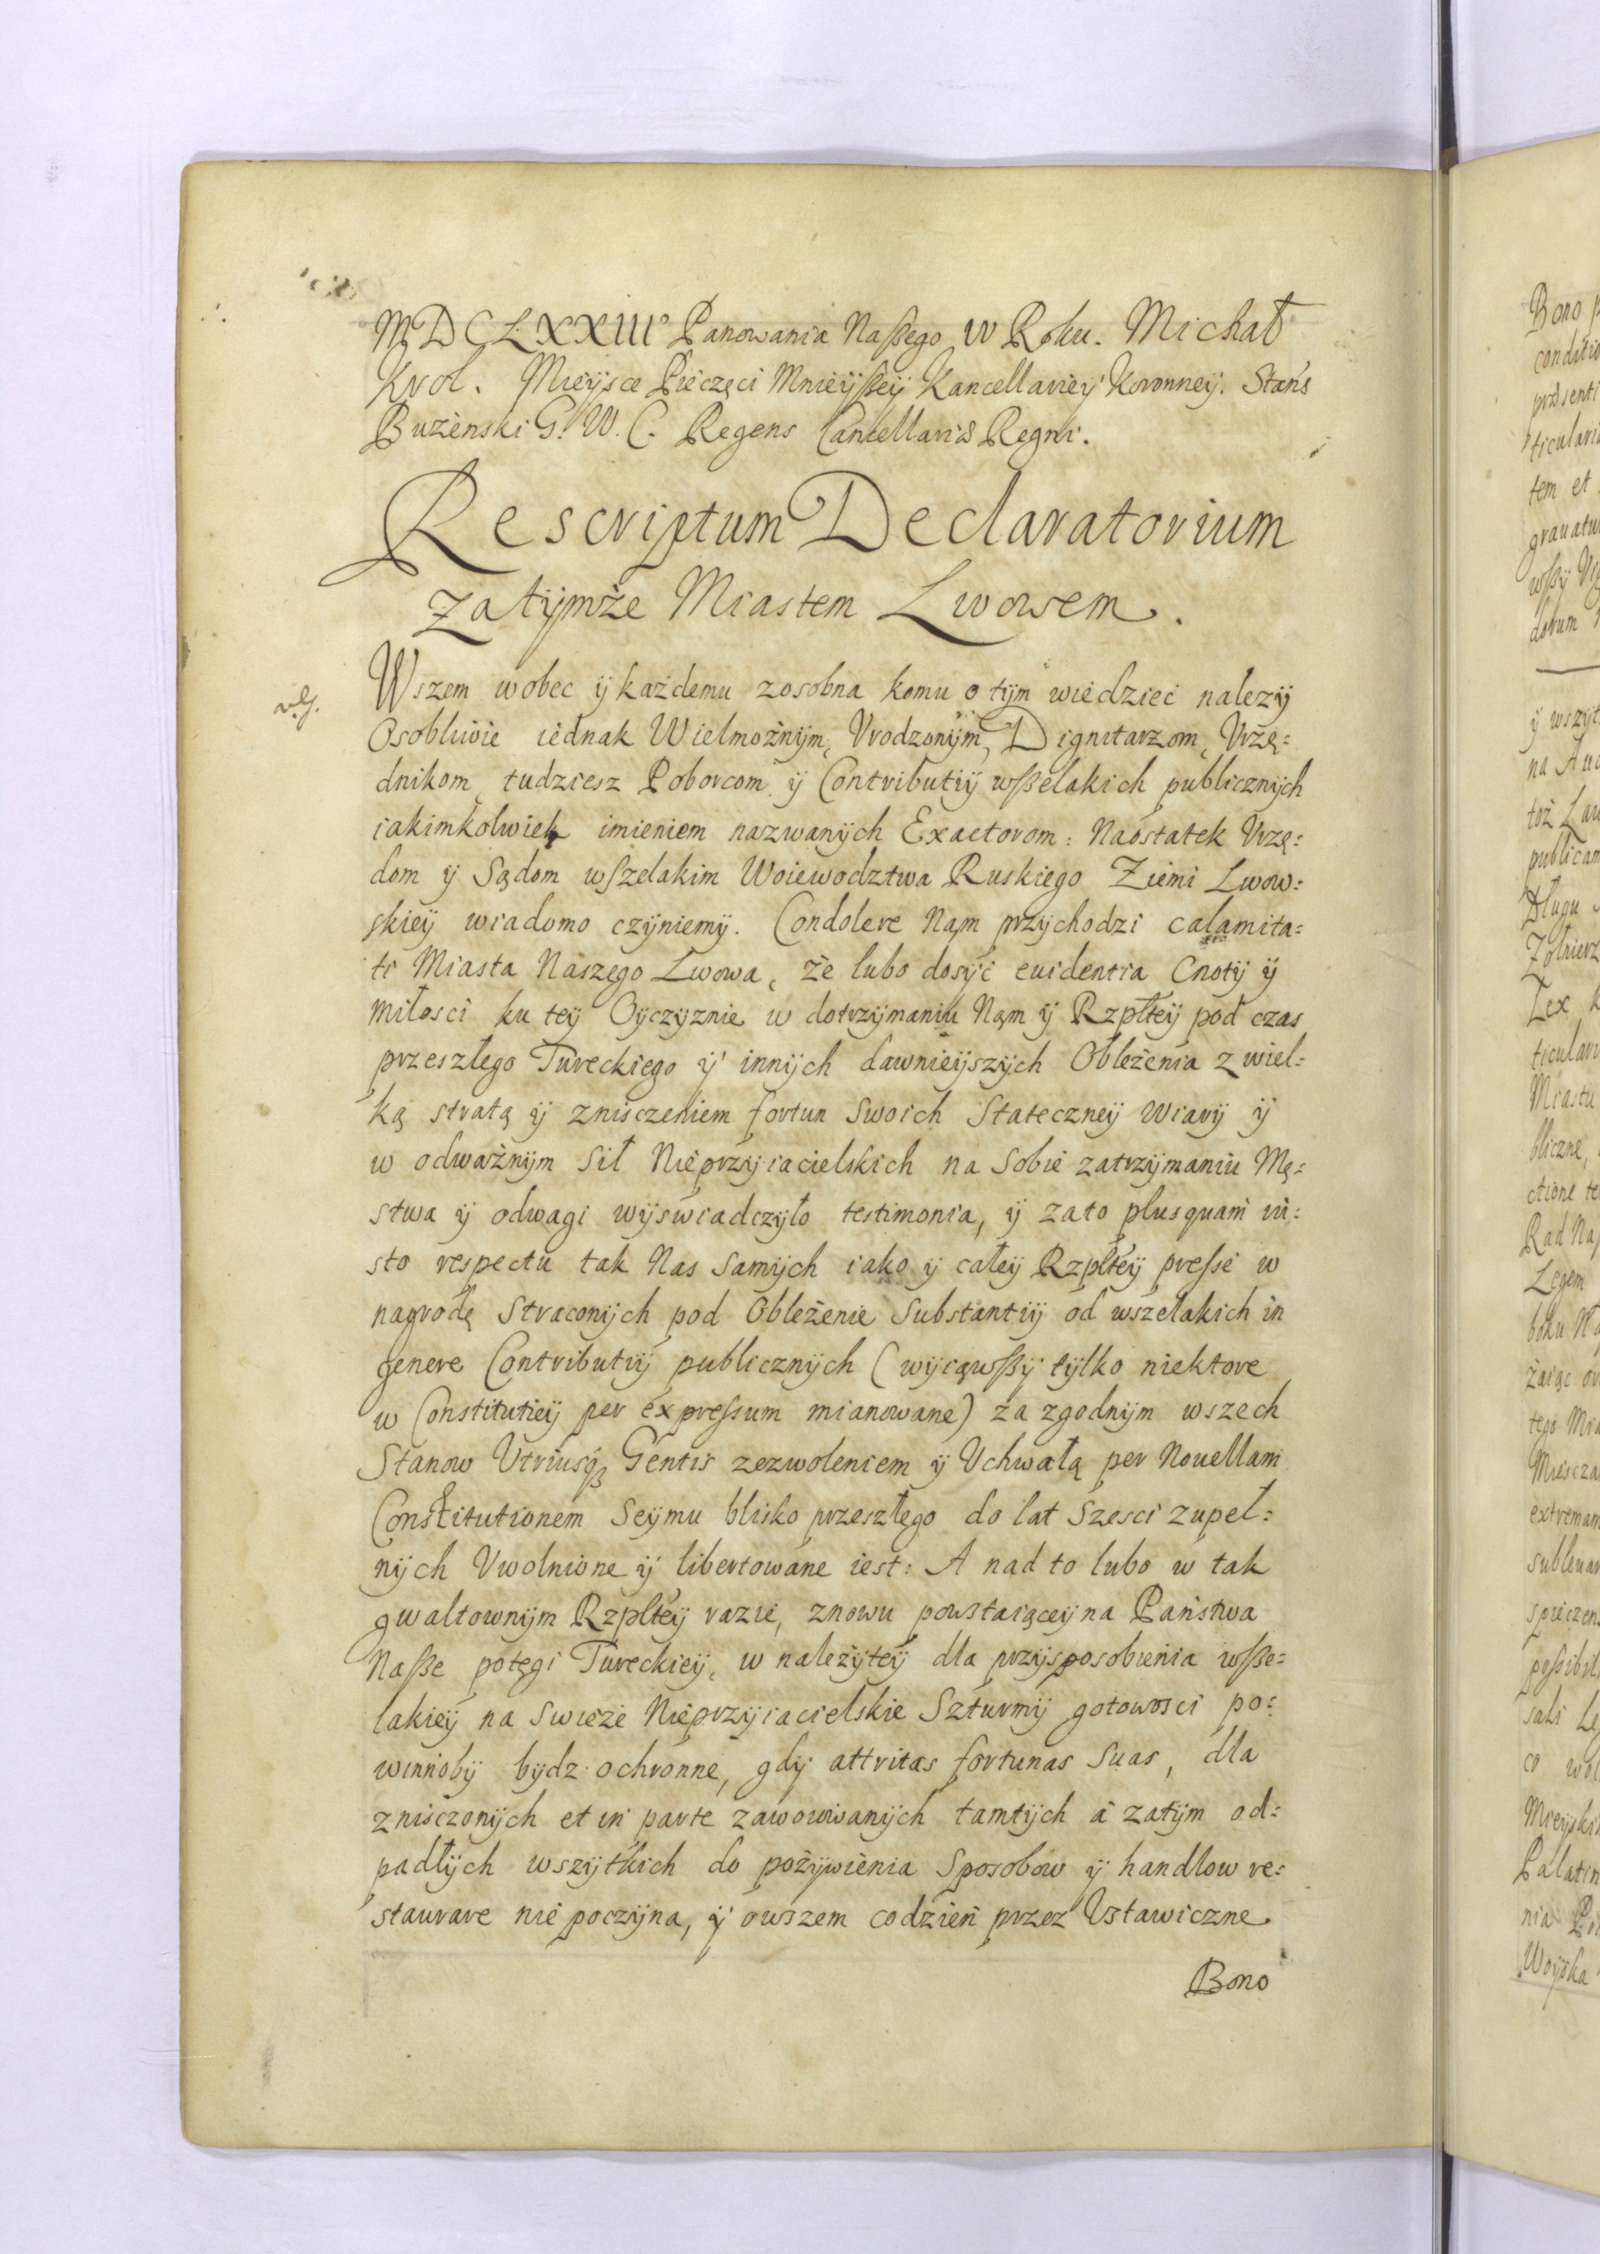 MDCLXXIII° Panowania Naßego IV Roku. Michał
Krol. Mieysce Pieczęci Mnieyßey Kancellariey Koronney. Stan's
Bużenski G. W. C. Regens Cancellariæ Regni.
Rescriptum Declaratorium
za tymże Miastem Lwowem.
Wszem wobec y każdemu zosobna komu o tym wiedziec nalezy
Osobliwie iednak Wielmożnym, Vrodzonym, Dignitarzom, Vrzę=
dnikom, tudziesz Poborcom y Contributiy wßelakich publicznych
iakimkolwiek imieniem nazwanych Exactorom: Naostatek Vrzę=
dom y Sądom wszelakim Woiewodztwa Ruskiego Ziemi Lwow=
skiey wiadomo czyniemy. Condolere Nąm przychodzi calamita=
ti Miasta Naszego Lwowa, że lubo dosyć euidentia Cnoty y
miłosci ku tey Oyczyznie w dotrzymaniu Nąm y Rzpłtey pod czas
przeszłego Tureckiego y innych dawnieyszych Oblężenia z wiel=
ką stratą y znisczeniem fortun swoich Stateczney wiary y
w odważnym sił Nieprzyiacielskich na sobie zatrzymaniu Mę=
stwa y odwagi wyświadczyło testimonia, y zato plusquam iu=
sto respectu tak Nas samych iako y całey Rzpłtey presse w
nagrodę straconych pod Oblężenie Substantiy od wszelakich in
genere Contributiy publicznych (wyiąwßy tylko niektore
w Constitutiey per expressum mianowane) za zgodnym wszech
Stanow Vtriusq3 Gentis zezwoleniem y Vchwałą per Nouellam
Constitutionem Seymu blisko przeszłego do lat szesci zupeł=
nych Vwolnione y libertowane iest: A nad to lubo w tak
gwałtownym Rzpłtey razie, znowu powstaiącey na Państwa
Naße potęgi Tureckiey, w należytey dla przysposobienia wße=
lakiey na swieże Nieprzyiacielskie Szturmy gotowosci po=
winnoby bydz ochronne, gdy attritas fortunas suas, dla
znisczonych et in parte zawoiowanych tamtych a zatym od=
padłych wszytkich do pożywienia Sposobow y handlow re=
staurare nie poczyna, y owszem codzień przez Vstawiczne
Bono